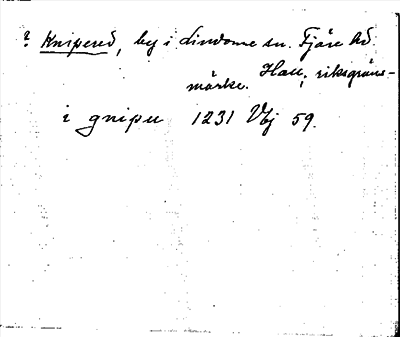 ? Knipered, by i Lindome sn. Fjäre hd.
Hall, riksgräns-
märke.
i gnipu 1231 Vbj 59.